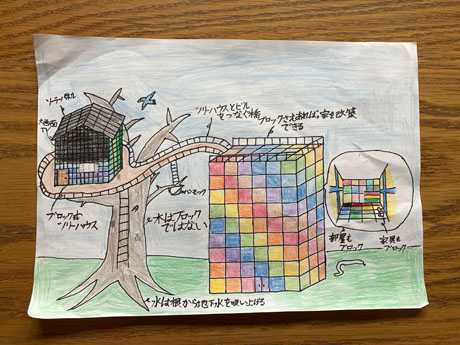 ソーラーパネル
ツリーハウスとビル
をつなぐ橋
ブロックさえあれば家を改築
できる
ハンモック
ブロック式
ツリーハウス
木はブロック
ではない
部屋も
ブロック
家具も
ブロック
水は根から地下水を吸い上げる